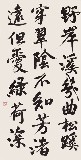 野岸溪幾曲松蹊
穿翠陰不知芳渚
遠但愛綠荷深